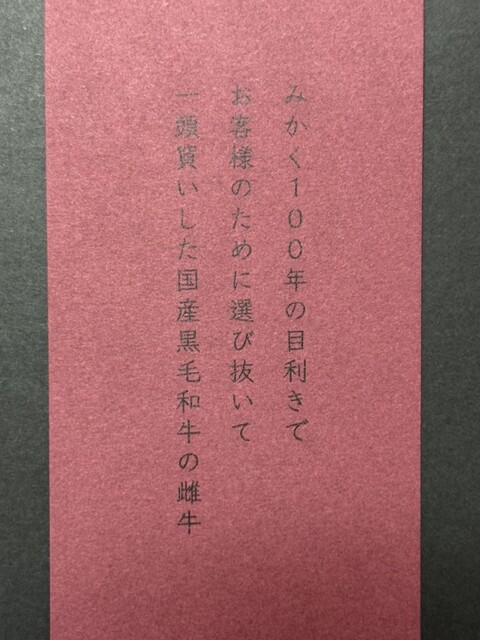 みかく100年の目利きで
お客様のために選び抜いて
一頭買いした国産黒毛和牛の雌牛